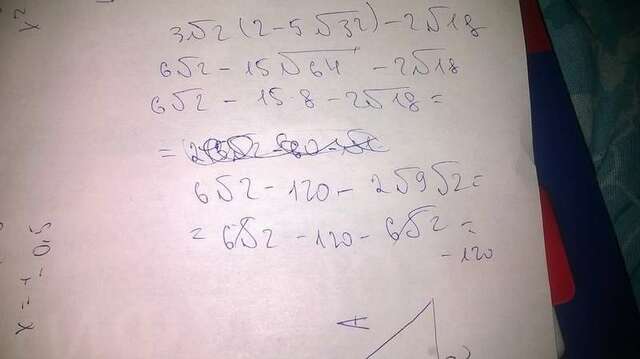 x²
3√2(2-5√32)-2√18
6√2-15√64-2√18
6√2-15·8-2√18=
=
6√2-120-2√9√2=
=6√2-120-6√2=
-120
A